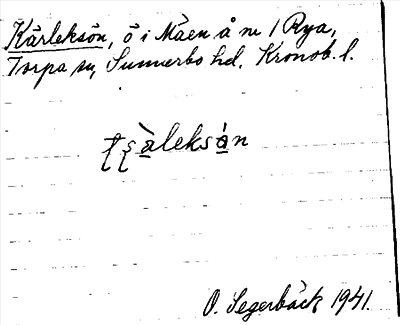 Kärleksön, ö i Måen å nr 1 Rya,
Torpa sn, Sunnerbo hd. Kronob. l.
ʈʂàleksán
O. Segerbäck 1941.